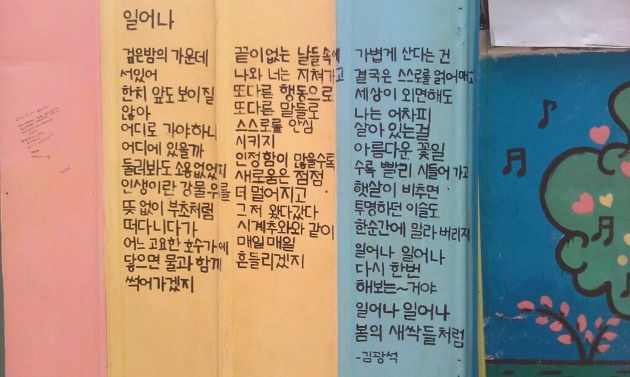 일어나
검은밤의 가운데
서있어
한치 앞도 보이질
않아
어디로 가야하니
어디에 있을까
둘러봐도 소용없었지
인생이란 강물 위를
뜻 없이 부초처럼
떠다니다가
어느 고요한 호수가에
닿으면 물과 함께
썩어가겠지
끝이없는 날들속에
나와 너는 지쳐가고
또다른 행동으로
또다른 말들로
스스로를 안심
시키지
인정함이 많을수록
새로움은 점점
더 멀어지고
그저 왔다갔다
시계추와와 같이
매일매일
흔들리겠지
가볍게 산다는 건
결국은 스스로를 얽어매고
세상이 외면해도
나는 어차피
살아 있는걸
아름다운 꽃일
수록 빨리 시들어 가고
햇살이 비추면
투명하던 이슬도
한순간에 말라 버리지
일어나 일어나
다시 한번
해보는~거야
일어나 일어나
봄의 새싹들처럼
-김광석